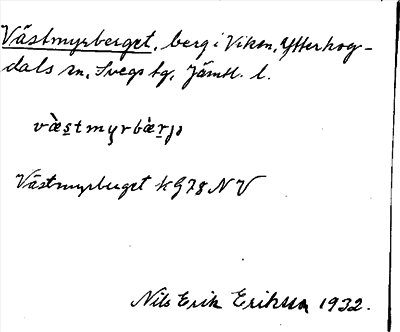 Västmyrberget, berg i Viken, Ytterhog-
dals sn, Svegs tg, Jämtl. l.
Västmyrberget KG78 NV
Nils Erik Eriksson 1932.